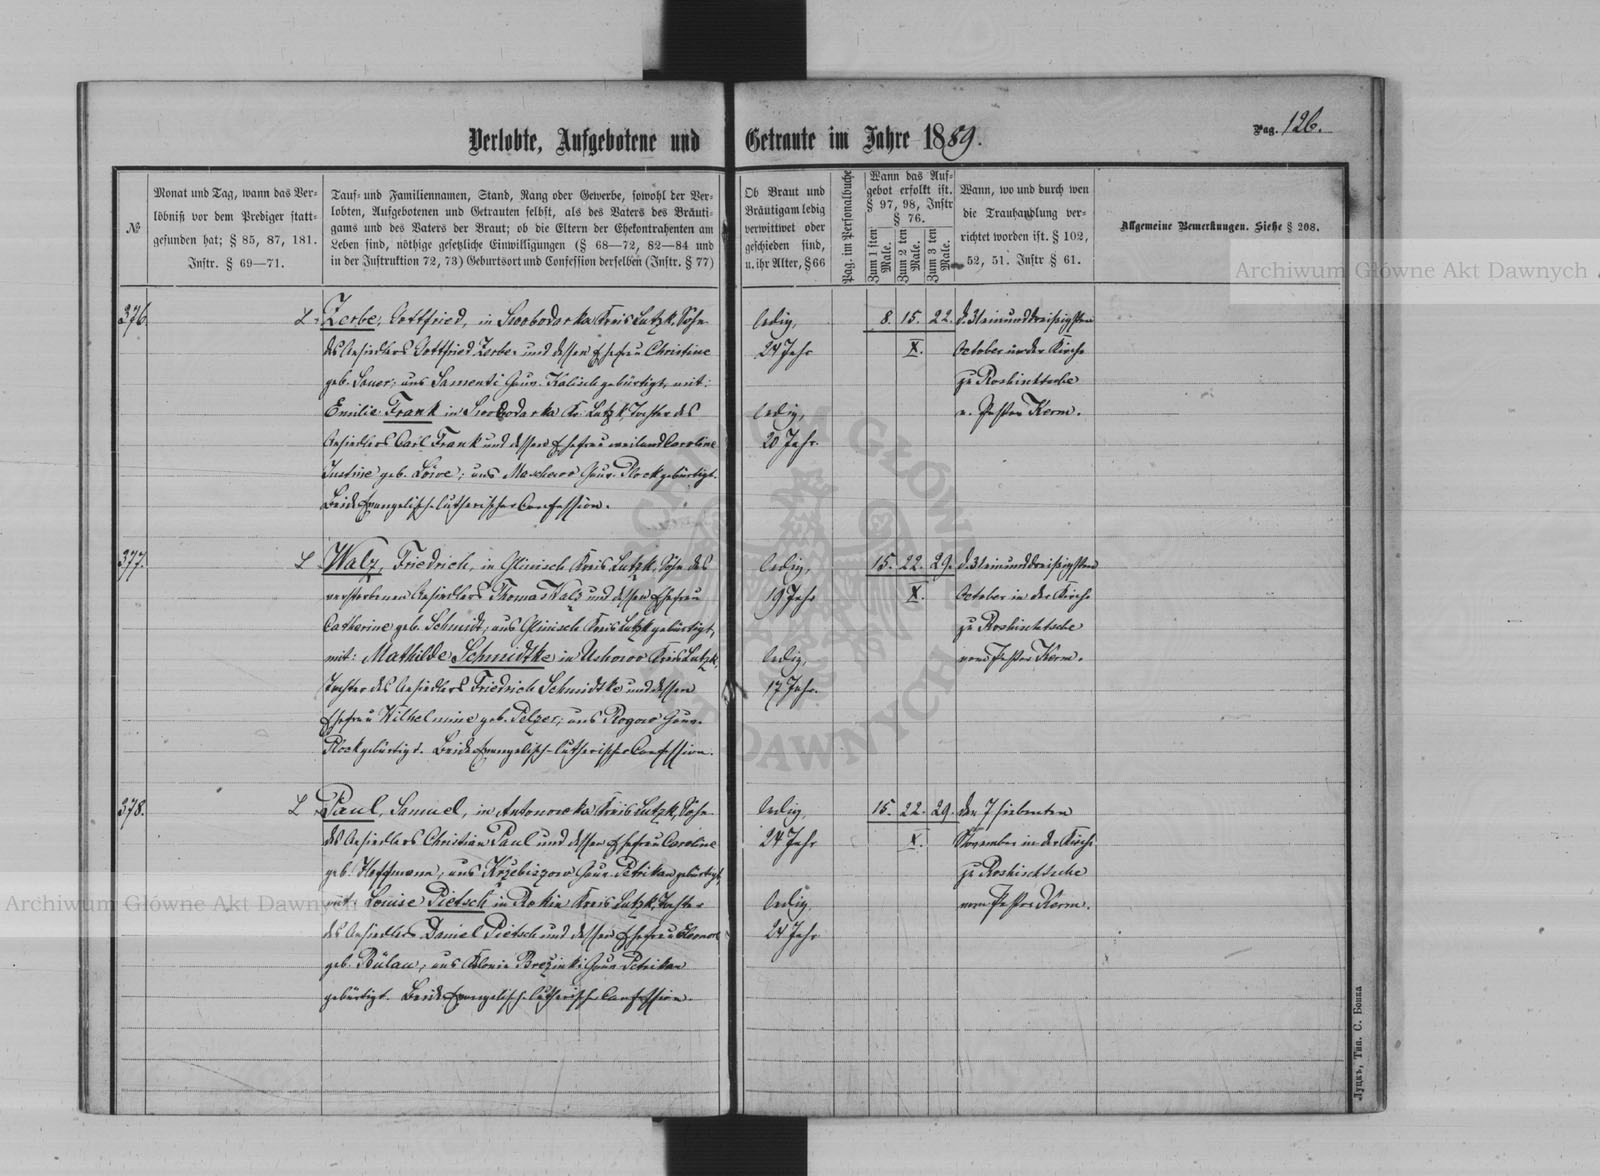 Verlobte, Aufgebotene und Getraute im Jahre 1889.
Pag. 126.
№
Monat und Tag, wann das Ver-
löbniß vor dem Prediger statt-
gefunden hat; § 85, 87, 181.
Instr. § 69—71.
Tauf- und Familiennamen, Stand, Rang oder Gewerbe, sowohl der Ver-
lobten, Aufgebotenen und Getrauten selbst, als des Vaters des Bräuti-
gams und des Vaters der Braut; ob die Eltern der Ehekontrahenten am
Leben sind, nöthige gesetzliche Einwilligungen (§ 68—72, 82—84 und
in der Instruktion 72, 73) Geburtsort und Confession derselben (Instr. § 77)
Ob Braut und
Bräutigam ledig
verwittwet oder
geschieden sind,
u. ihr Alter, § 66
Pag. im Personalbuche
Wann das Auf-
gebot erfolgt ist.
§ 97, 98, Instr
§ 76.
Zum 1 sten Male.
Zum 2 ten Male.
Zum 3 ten Male.
Wann, wo und durch wen
die Trauhandlung ver-
richtet worden ist. § 102,
52, 51. Instr § 61.
Allgemeine Bemerkungen. Siehe § 208.
376.
L. Zerbe, Gottfried, in Swobodarka Kreis Lutzk, Sohn
des Ansiedlers Gottfried Zerbe und dessen Ehefrau Christine
geb. Sauer; aus Gouv. Kalisch gebürtigt, mit:
Emilie Frank in Swobodarka Kr. Lutzk, Tochter des
Ansiedlers Carl Frank und dessen Ehefrau weiland Caroline
Justine geb. Löwe; aus Gouv. Plock gebürtigt.
Beide Evangelisch-lutherischer Confession.
ledig,
24 Jahr
ledig,
20 Jahr.
8. 15. 22.
X.
d. 31 einunddreißigsten
October in der Kirche
zu Roshischtsche
v. Pastor Kerm.
377.
L Walz, Friedrich, in Glinisch Kreis Lutzk, Sohn des
verstorbenen Ansiedlers Thomas Walz und dessen Ehefrau
Catharine geb. Schmidt; aus Glinisch Kreis Lutzk gebürtigt,
mit: Mathilde Schmidtke in Ushowo Kreis Lutzk,
Tochter des Ansiedlers Friedrich Schmidtke und dessen
Ehefrau Wilhelmine geb. Pelzer; aus Rogowo Gouv.
Plock gebürtigt. Beide Evangelisch-lutherischer Confession.
ledig,
19 Jahr
ledig,
17 Jahr.
15. 22. 29.
X.
d. 31 einunddreißigsten
October in der Kirche
zu Roshischtsche
vom Pastor Kerm.
378.
L Paul, Samuel, in Antonowka Kreis Lutzk, Sohn
des Ansiedlers Christian Paul und dessen Ehefrau Caroline
geb. Hoffmann; aus Gouv. Petrikau gebürtigt,
mit: Louise Pietsch in Rokin Kreis Lutzk, Tochter
des Ansiedlers Daniel Pietsch und dessen Ehefrau Eleonore
geb. Bülau; aus Kolonie Brezinki Gouv. Petrikau
gebürtigt. Beide Evangelisch-lutherischer Confession.
ledig,
24 Jahr
ledig,
24 Jahr
15. 22. 29.
X.
den 7 siebenten
November in der Kirche
zu Roshischtsche
vom Pastor Kerm.
Луцкъ, Тип. С. Бонка
Archiwum Główne Akt Dawnych
Archiwum Główne Akt Dawnych